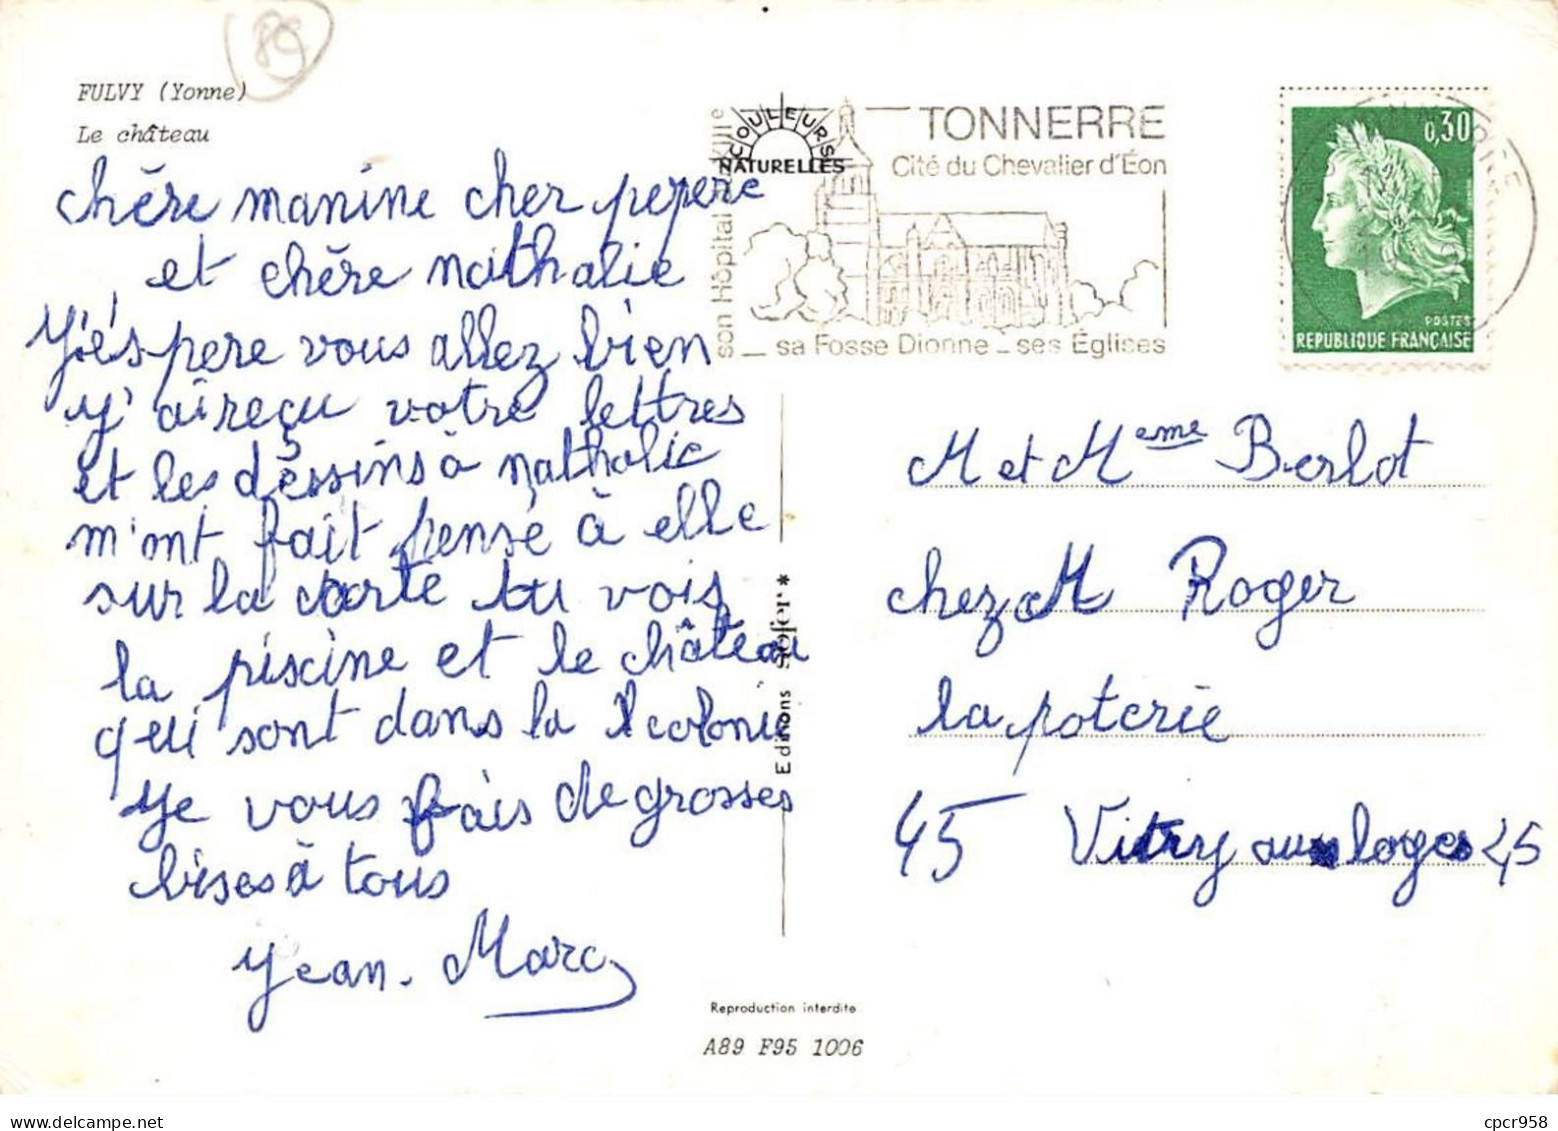 FULVY (Yonne)
Le château
89
chére manine cher pepere
et chére nathalie
J'éspere vous allez bien
j'ai reçu votre lettres
et les dessins à nathalie
m'ont fait pensé à elle
sur la carte tu vois
la piscine et le château
qui sont dans la colonie
Je vous fais de grosses
bises à tous
Jean-Marc
COULEURS
NATURELLES
TONNERRE
Cité du Chevalier d'Éon
son Hôpital
sa Fosse Dionne - ses Églises
0,30
POSTES
REPUBLIQUE FRANÇAISE
M et Meme Berlot
chez M Roger
la poterie
45 Vitry aux loges 45
Editions
Reproduction interdite
A89 F95 1006
cpcr958